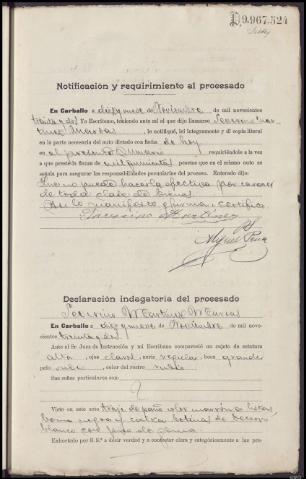 D9.967.524
Notificación y requirimiento al procesado
En Carballo a diez y nueve de Noviembre de mil novecientos
treinta y dos Yo Escribano, teniendo ante mí al que dijo llamarse
le notifiqué, leí íntegramente y dí copia literal
en la parte necesaria del auto dictado con fecha de hoy
en el presente sumario requiriéndole a la vez
a que prestase fianza de quinientas pesetas que en el mismo auto se
señala para asegurar las responsabilidades pecuniarias del proceso. Enterado dijo:
Que no puede hacerla efectiva por carecer
de toda clase de bienes
Así lo manifiesta y firma, certifico
Declaración indagatoria del procesado
Martínez
En Carballo a diez y nueve de Noviembre de mil nove-
cientos treinta y dos
Ante el Sr. Juez de Instrucción y mi Escribano compareció un sujeto de estatura
alta, ojos claros, nariz regular, boca grande
pelo color del rostro
Sus señas particulares son:
Viste en este acto traje de paño color marrón a listas
boina negra y calza botinas de
blanco con piso de goma
Exhortado por S. S.ª a decir verdad y a contestar clara y categóricamente a las pre-